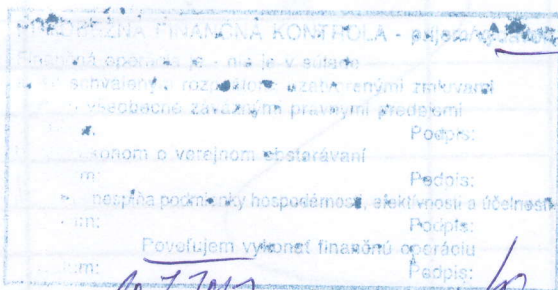 FINANČNÁ KONTROLA -
Finančná operácia je - nie je v súlade
schváleným rozpočtom uzatvorenými zmluvami
všeobecne záväznými právnymi predpismi
Podpis:
zákonom o verejnom obstarávaní
um: Podpis:
nespĺňa podmienky hospodárnosti, efektívnosti a účelnosti
um: Podpis:
Povoľujem vykonať finančnú operáciu
um: Podpis: